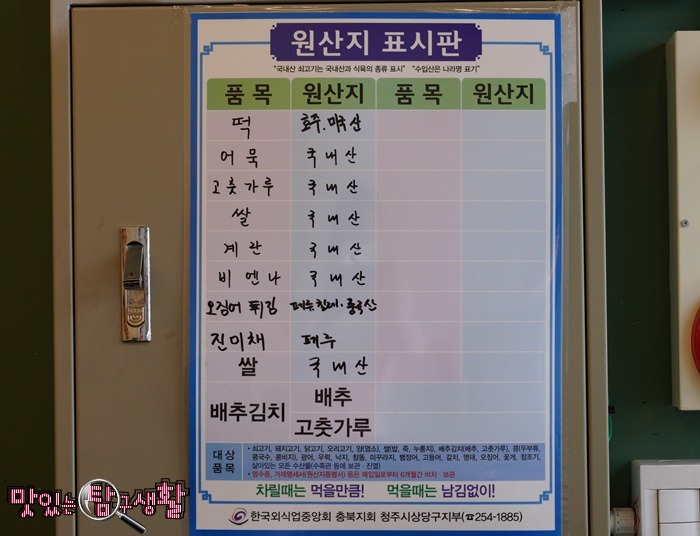 원산지 표시판
"국내산 쇠고기는 국내산과 식육의 종류 표시" "수입산은 나라명 표기"
품 목 원산지 품 목 원산지
떡 호주, 미국산
어묵 국내산
고춧가루 국내산
쌀 국내산
계란 국내산
비엔나 국내산
오징어 튀김 페루,칠레,중국산
진미채 페루
쌀 국내산
배추김치 배추
고춧가루
대상
품목
• 쇠고기, 돼지고기, 닭고기, 오리고기, 양(염소), 쌀(밥, 죽, 누룽지), 배추김치(배추, 고춧가루), 콩(두부류,
콩국수, 콩비지), 광어, 우럭, 낙지, 참돔, 미꾸라지, 뱀장어, 고등어, 갈치, 명태, 오징어, 꽃게, 참조기,
살아있는 모든 수산물(수족관 등에 보관·진열)
• 영수증, 거래명세서(원산지증명서) 등은 매입일로부터 6개월간 비치·보관
차릴때는 먹을만큼! 먹을때는 남김없이!
한국외식업중앙회 충북지회 청주시상당구지부(☎254-1885)
맛있는 탐구생활